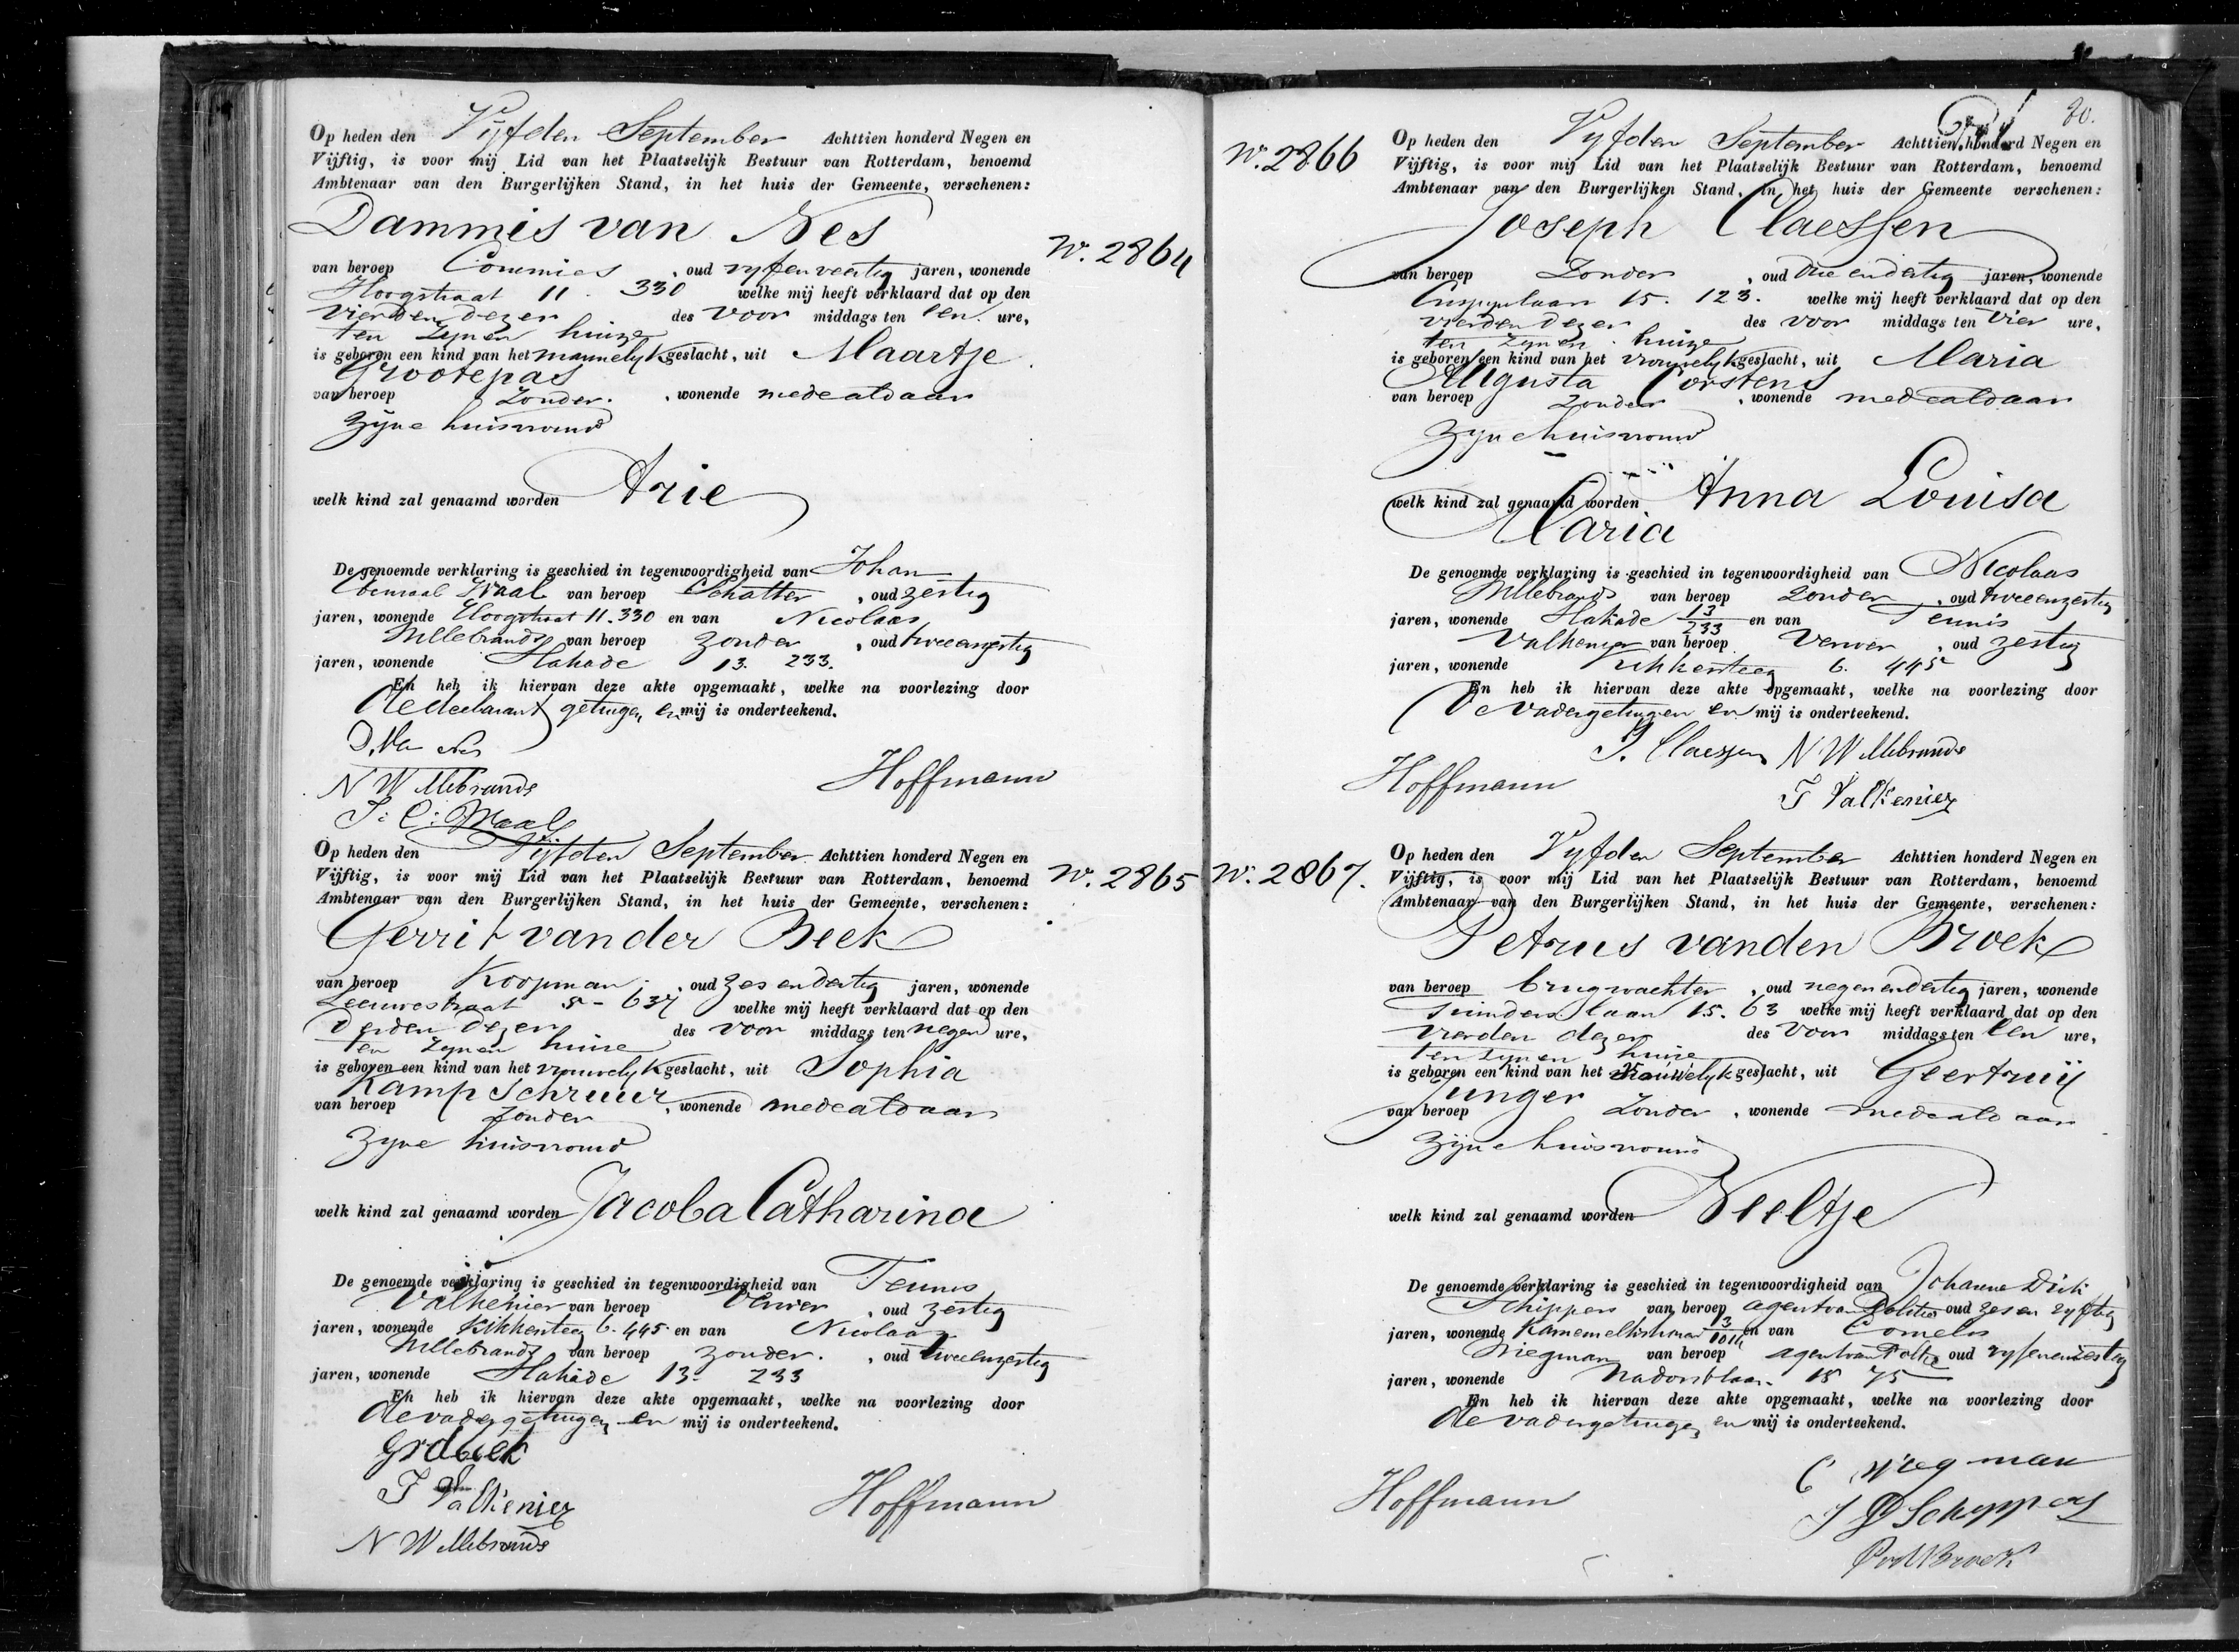 Op heden den Vijfden September Achttien honderd Negen en
Vijftig, is voor mij Lid van het Plaatselijk Bestuur van Rotterdam, benoemd
Ambtenaar van den Burgerlijken Stand, in het huis der Gemeente, verschenen:
Dammis van Nes
No. 2864
van beroep Commies, oud vyfenveertig jaren, wonende
Hoogstraat 11. 330 welke mij heeft verklaard dat op den
vierden dezer des voor middags ten een ure,
ten zynen huize
is geboren een kind van het mannelyk geslacht, uit Maartje
Grootepas
van beroep Zonder. , wonende mede aldaar
Zyne huisvrouw
welk kind zal genaamd worden Arie
De genoemde verklaring is geschied in tegenwoordigheid van Johan
Waal van beroep Schatter, oud zestig
jaren, wonende Hoogstraat 11. 330 en van Nicolaas
Willebrands van beroep zonder, oud tweeenzestig
jaren, wonende Slakade 13. 233.
En heb ik hiervan deze akte opgemaakt, welke na voorlezing door
de declarant getuigen en mij is onderteekend.
D. Van Nes
N Willebrands
Hoffmann
J: C: Waal
Op heden den Vijfden September Achttien honderd Negen en
Vijftig, is voor mij Lid van het Plaatselijk Bestuur van Rotterdam, benoemd
No. 2865
Ambtenaar van den Burgerlijken Stand, in het huis der Gemeente, verschenen:
Gerrit van der Beek
van beroep Koopman, oud zesendertig jaren, wonende
Leeuwestraat 5 - 637 welke mij heeft verklaard dat op den
derden dezer des voor middags ten negen ure,
ten zynen huize
is geboren een kind van het vrouwelyk geslacht, uit Sophia
Kamp Schreuur
van beroep Zonder, wonende mede aldaar
Zyne huisvrouw
welk kind zal genaamd worden Jacoba Catharina
De genoemde verklaring is geschied in tegenwoordigheid van Teunis
Valkenier van beroep Verver, oud zestig
jaren, wonende Kikkersteeg 6. 445 en van Nicolaas
Willebrands van beroep zonder. , oud tweeenzestig
jaren, wonende Slakade 13. 233
En heb ik hiervan deze akte opgemaakt, welke na voorlezing door
de vader getuigen en mij is onderteekend.
GvdBeek
T Valkenier
Hoffmann
N Willebrands
80.
No. 2866
Op heden den Vyfden September Achttien honderd Negen en
Vijftig, is voor mij Lid van het Plaatselijk Bestuur van Rotterdam, benoemd
Ambtenaar van den Burgerlijken Stand, in het huis der Gemeente verschenen:
Joseph Claessen
van beroep Zonder, oud drieendertig jaren, wonende
15. 123. welke mij heeft verklaard dat op den
vierden dezer des voor middags ten vier ure,
ten zynen huize
is geboren een kind van het vrouwelyk geslacht, uit Maria
Augusta Corstens
van beroep Zonder, wonende mede aldaar
Zyne huisvrouw
welk kind zal genaamd worden Anna Louisa
Maria
De genoemde verklaring is geschied in tegenwoordigheid van Nicolaas
Willebrands van beroep Zonder, oud tweeenzestig
jaren, wonende Slakade 13/233 en van Teunis
Valkenier van beroep Verver, oud zestig
jaren, wonende Kikkersteeg 6. 445
En heb ik hiervan deze akte opgemaakt, welke na voorlezing door
de vader getuigen en mij is onderteekend.
J. Claessen N Willebrands
Hoffmann
T Valkenier
No. 2867.
Op heden den Vyfden September Achttien honderd Negen en
Vijftig, is voor mij Lid van het Plaatselijk Bestuur van Rotterdam, benoemd
Ambtenaar van den Burgerlijken Stand, in het huis der Gemeente, verschenen:
Petrus van den Broek
van beroep brugwachter, oud negenendertig jaren, wonende
laan 15. 63 welke mij heeft verklaard dat op den
vierden dezer des voor middags ten een ure,
ten zynen huize
is geboren een kind van het vrouwelyk geslacht, uit Geertruij
Junger
van beroep Zonder, wonende mede aldaar
Zijne huisvrouw
welk kind zal genaamd worden Neeltje
De genoemde verklaring is geschied in tegenwoordigheid van Johannes Dirk
Schippers van beroep agent van Politie oud zes en vyftig
jaren, wonende en van Cornelis
Wiegman van beroep agent van Politie oud
jaren, wonende 15 75
En heb ik hiervan deze akte opgemaakt, welke na voorlezing door
de vader getuigen en mij is onderteekend.
C Wiegman
Hoffmann
J D Schippers
PvdBroek